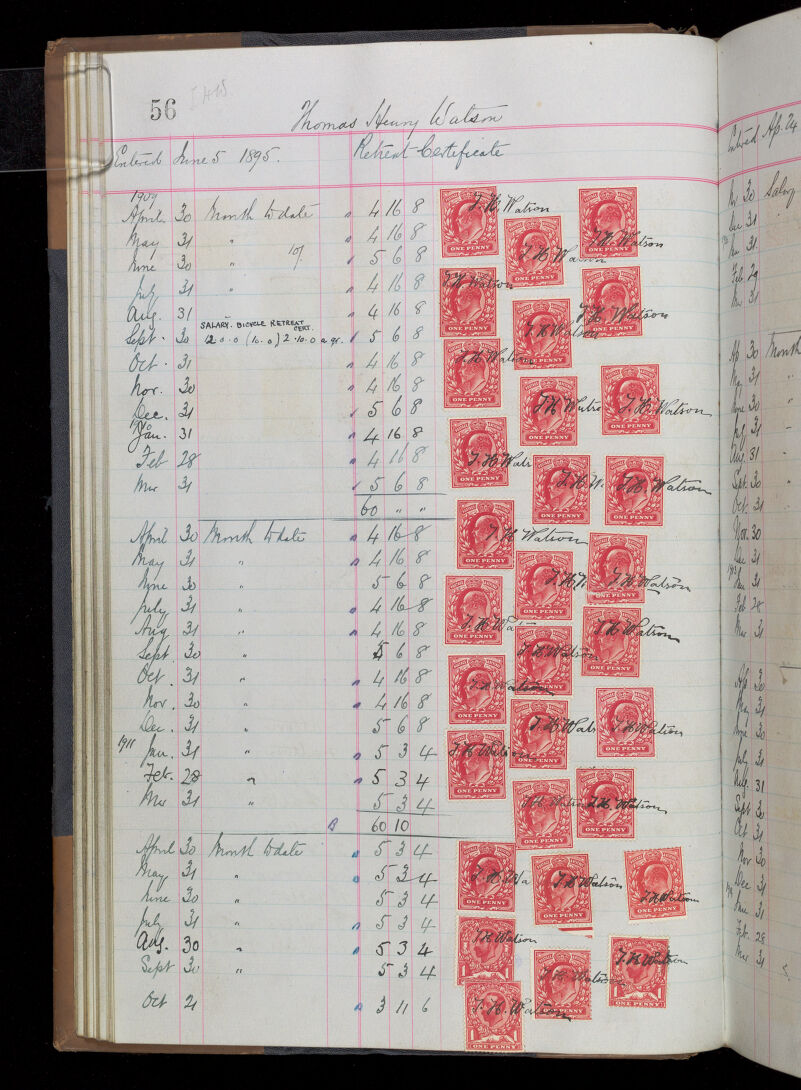 56
Thomas Henry Watson
Entered June 5 1895. Retreat Certificate
1909
April 30 Month to date 4 16 8
May 31 " 4 16 8
June 30 " 5 6 8
July 31 " 4 16 8
Aug. 31 4 16 8
SALARY. BICYCLE RETREAT CERT.
Sept. 30 5 6 8
Oct. 31 4 16 8
Nov. 30 4 16 8
Dec. 31 5 6 8
Jan. 31 4 16 8
Feb 28 4 16 8
Mar 31 5 6 8
60 " "
April 30 Month to date 4 16 8
May 31 " 4 16 8
June 30 " 5 6 8
July 31 " 4 16 8
Aug 31 " 4 16 8
Sept. 30 " 5 6 8
Oct. 31 " 4 16 8
Nov. 30 " 4 16 8
Dec. 31 " 5 6 8
1911 Jan. 31 " 5 3 4
Feb. 28 " 5 3 4
Mar 31 " 5 3 4
60 10
April 30 Month to date 5 3 4
May 31 " 5 3 4
June 30 " 5 3 4
July 31 " 5 3 4
Aug. 30 " 5 3 4
Sept 30 " 5 3 4
Oct 21 3 11 6
T. H. Watson
ONE PENNY
T. H. Watson
ONE PENNY
T. H. Watson
ONE PENNY
Entered Ap. 24
Nov 30 Salary
Dec 31
Jan 31
Feb 29
Mar 31
Ap 30 Month
May 31
June 30
July 31
Aug. 31
Sept 30
Oct. 31
Nov. 30
Dec 31
Jan 31
Feb 28
Mar 31
Ap. 30
May 31
June 30
July 31
Aug. 31
Sept 30
Oct 31
Nov 30
Dec 31
Jan 31
Feb. 28
Mar 31